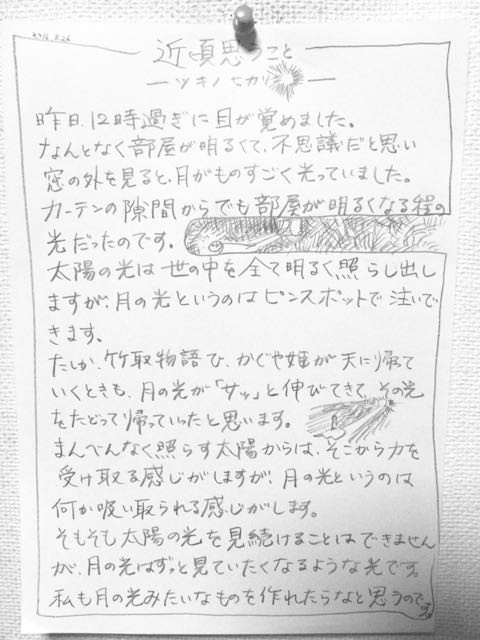 2016.8.26
近頃思うこと
ーツキノヒカリー
昨日、12時過ぎに目が覚めました。
なんとなく部屋が明るくて、不思議だと思い
窓の外を見ると、月がものすごく光っていました。
カーテンの隙間からでも部屋が明るくなる程の
光だったのです。
太陽の光は世の中を全て明るく照らし出し
ますが、月の光というのはピンスポットで注いで
きます。
たしか、竹取物語で、かぐや姫が天に帰って
いくときも、月の光が「サッ」と伸びてきて、その光
をたどって帰っていったと思います。
まんべんなく照らす太陽からは、そこから力を
受け取る感じがしますが、月の光というのは
何か吸い取られる感じがします。
そもそも太陽の光を見続けることはできません
が、月の光はずっと見ていたくなるような光です。
私も月の光みたいなものを作れたらなと思うのです。